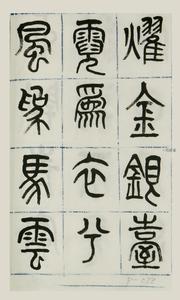 燿金銀臺
霓爲衣兮
風爲馬雲